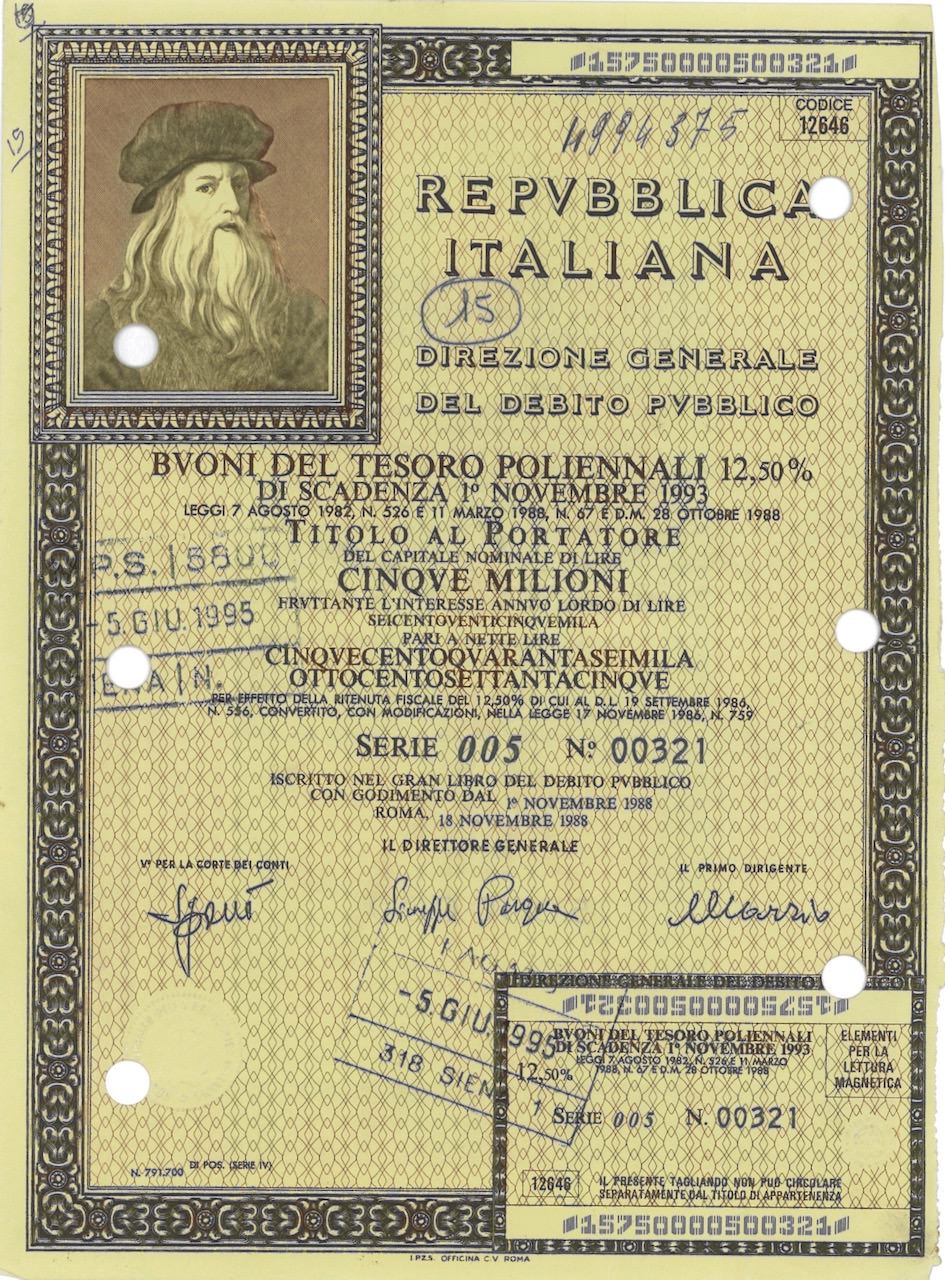 15
15750000500321
CODICE
12646
4994375
REPVBBLICA
ITALIANA
15
DIREZIONE GENERALE
DEL DEBITO PVBBLICO
BVONI DEL TESORO POLIENNALI 12,50%
DI SCADENZA 1º NOVEMBRE 1993
LEGGI 7 AGOSTO 1982, N. 526 E 11 MARZO 1988, N. 67 E D.M. 28 OTTOBRE 1988
TITOLO AL PORTATORE
DEL CAPITALE NOMINALE DI LIRE
CINQVE MILIONI
FRVTTANTE L'INTERESSE ANNVO LORDO DI LIRE
SEICENTOVENTICINQVEMILA
PARI A NETTE LIRE
CINQVECENTOQVARANTASEIMILA
OTTOCENTOSETTANTACINQVE
PER EFFETTO DELLA RITENUTA FISCALE DEL 12,50% DI CUI AL D.L. 19 SETTEMBRE 1986,
N. 556, CONVERTITO, CON MODIFICAZIONI, NELLA LEGGE 17 NOVEMBRE 1986, N. 759
P.S.
-5.GIU.1995
N.
SERIE 005 Nº 00321
ISCRITTO NEL GRAN LIBRO DEL DEBITO PVBBLICO
CON GODIMENTO DAL 1º NOVEMBRE 1988
ROMA, 18 NOVEMBRE 1988
IL DIRETTORE GENERALE
Vº PER LA CORTE DEI CONTI
IL PRIMO DIRIGENTE
-5.GIU.1995
318 SIEN
1
DIREZIONE GENERALE DEL DEBITO
15750000500321
BVONI DEL TESORO POLIENNALI
DI SCADENZA 1º NOVEMBRE 1993
LEGGI 7 AGOSTO 1982, N. 526 E 11 MARZO
1988, N. 67 E D.M. 28 OTTOBRE 1988
12,50%
ELEMENTI
PER LA
LETTURA
MAGNETICA
SERIE 005 N. 00321
12646
IL PRESENTE TAGLIANDO NON PUÒ CIRCOLARE
SEPARATAMENTE DAL TITOLO DI APPARTENENZA
15750000500321
N. 791.700 DI POS. (SERIE IV)
I.P.Z.S. OFFICINA C.V. ROMA